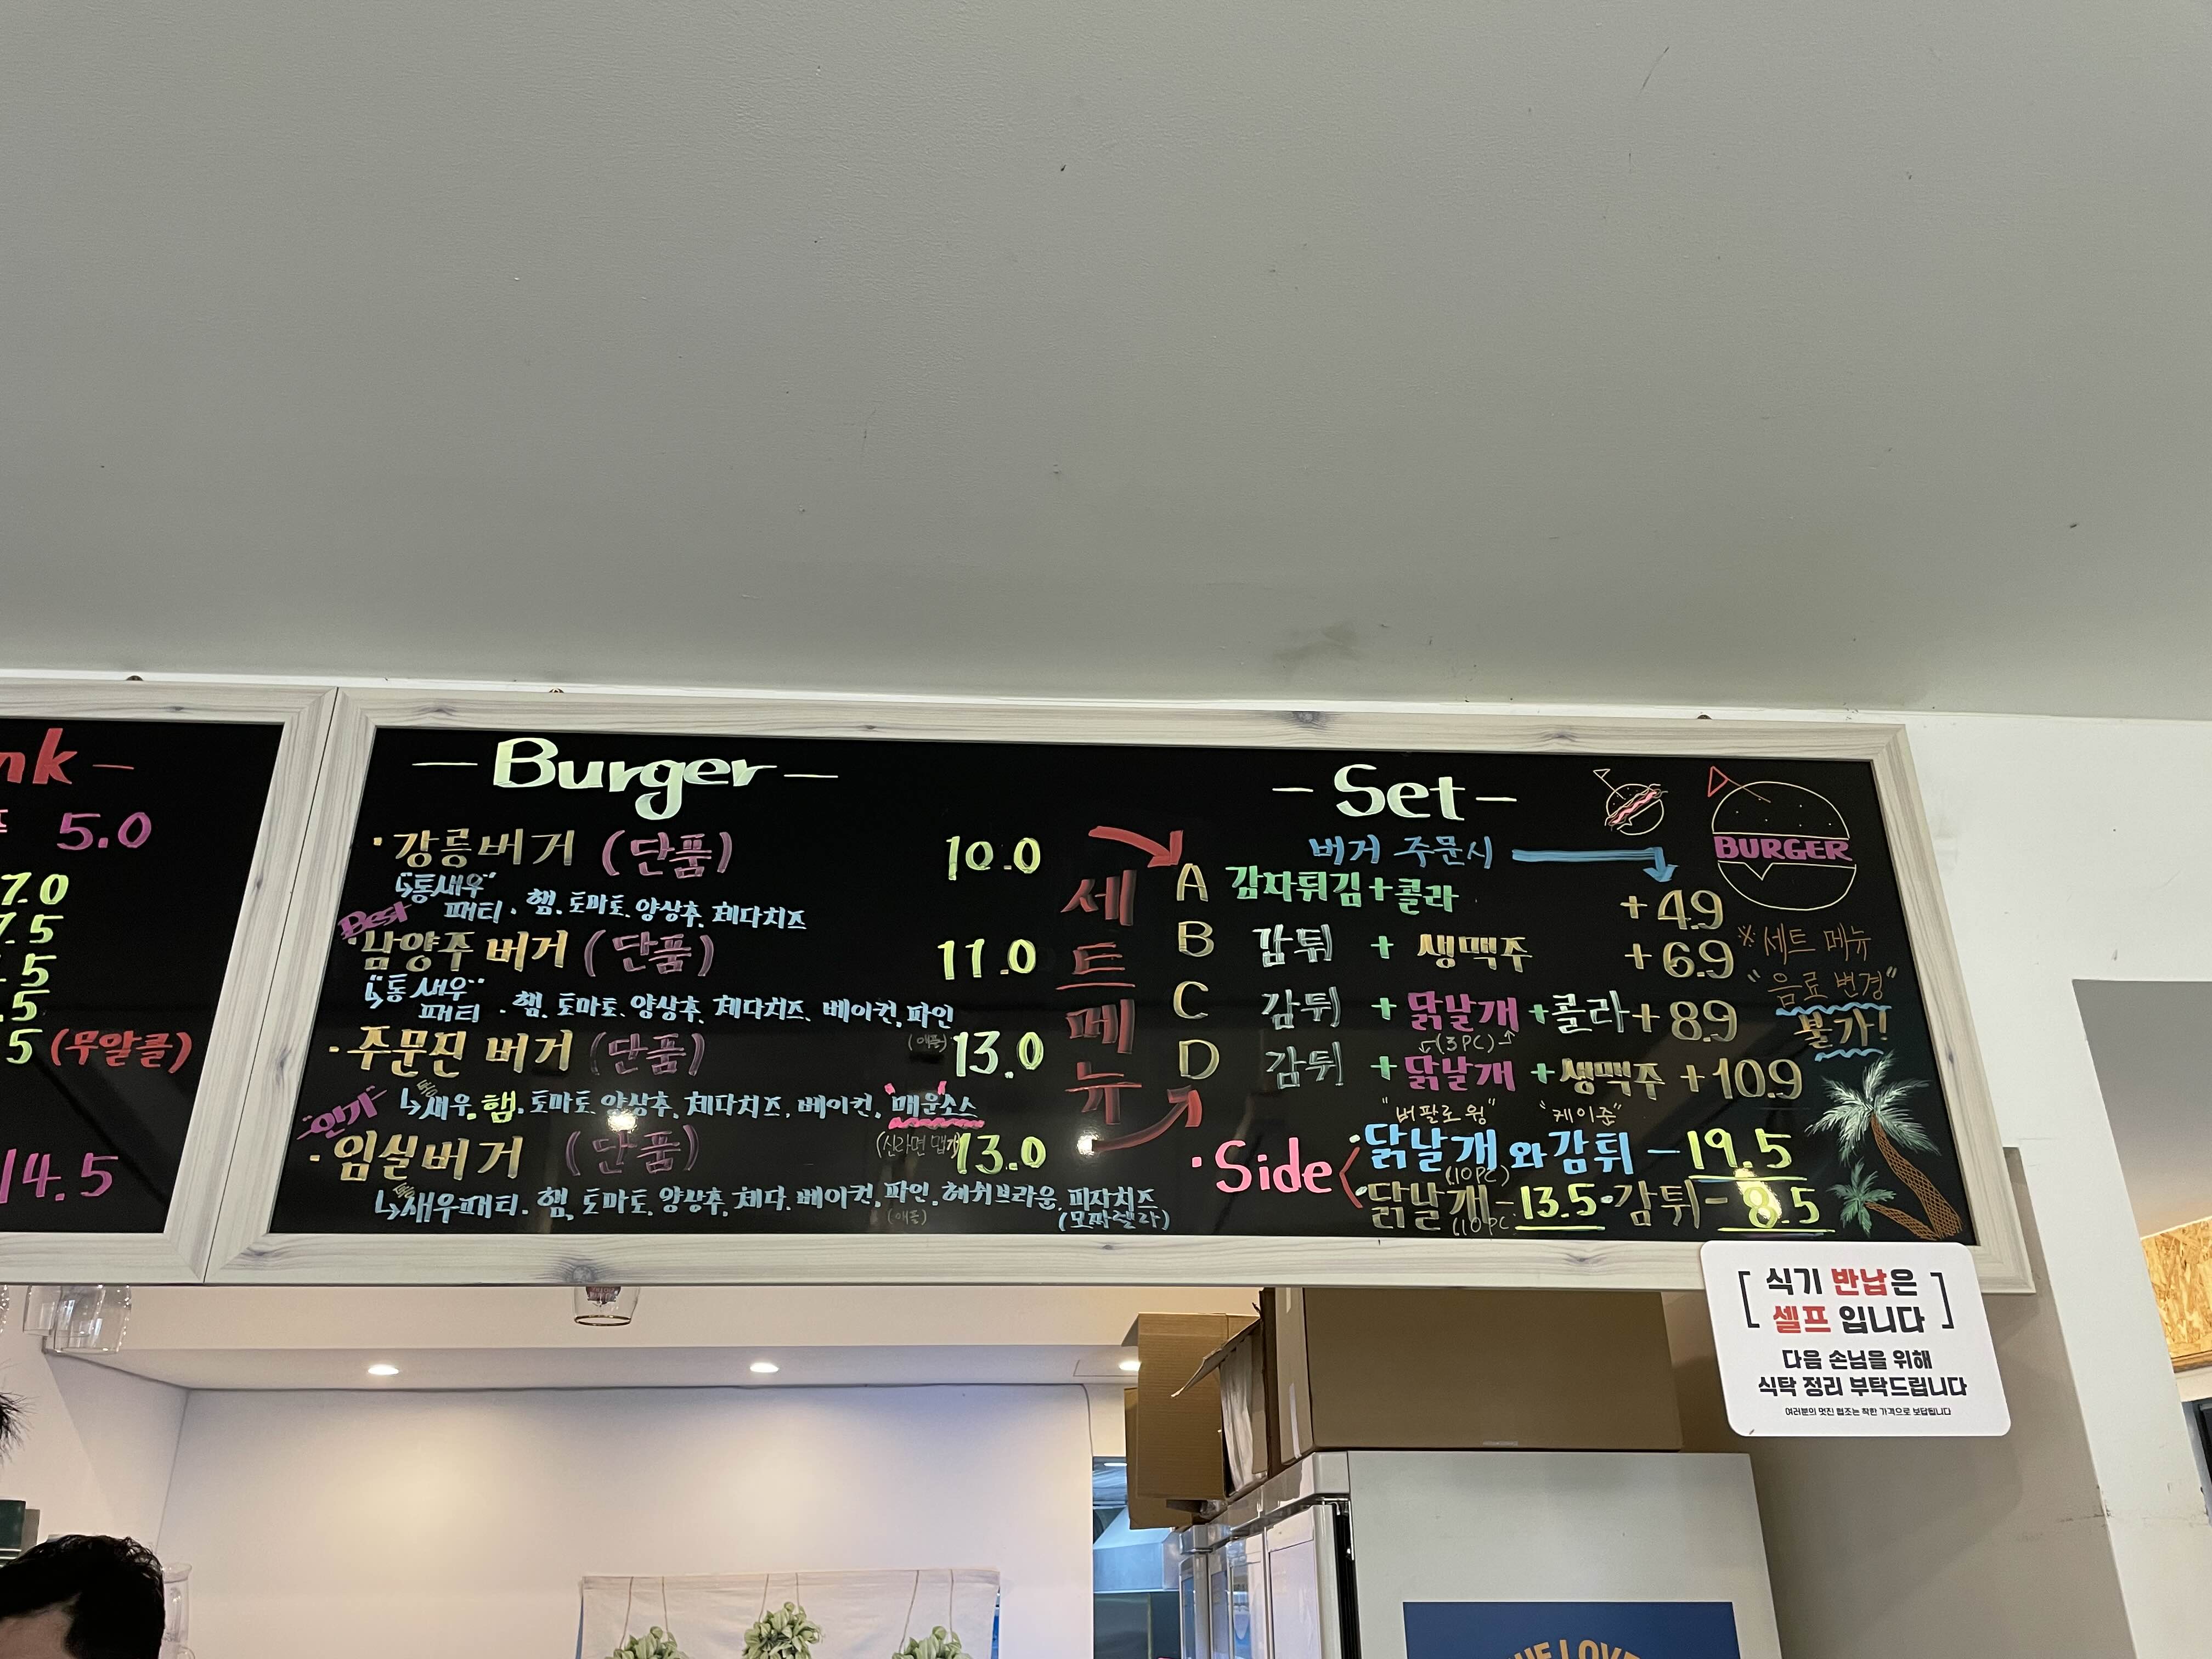 nk -
5.0
7.0
7.5
.5
.5
5 (무알콜)
14.5
- Burger -
· 강릉버거 (단품) 10.0
↳"통새우"
패티. 햄. 토마토. 양상추. 체다치즈
Best
· 남양주 버거 (단품) 11.0
↳"통새우"
패티. 햄. 토마토. 양상추. 체다치즈. 베이컨, 파인
(애플)
· 주문진 버거 (단품) 13.0
↳통새우. 햄. 토마토. 양상추. 체다치즈, 베이컨, 매운소스
-인기-
(신라면 맵기)
· 임실버거 (단품) 13.0
↳통새우패티. 햄. 토마토. 양상추. 체다. 베이컨, 파인. 해쉬브라운, 피자치즈
(애플)
(모짜렐라)
- Set -
버거 주문시
세트메뉴
A 감자튀김+콜라 +4.9
B 감튀 + 생맥주 +6.9
C 감튀 + 닭날개 +콜라+8.9
(3PC)
D 감튀 + 닭날개 +생맥주 +10.9
BURGER
※세트 메뉴
"음료 변경"
불가!
"버팔로윙" "케이준"
· Side
닭날개와감튀 - 19.5
(10PC)
닭날개-13.5·감튀- 8.5
(10PC
[ 식기 반납은
셀프 입니다 ]
다음 손님을 위해
식탁 정리 부탁드립니다
여러분의 멋진 협조는 착한 가격으로 보답됩니다